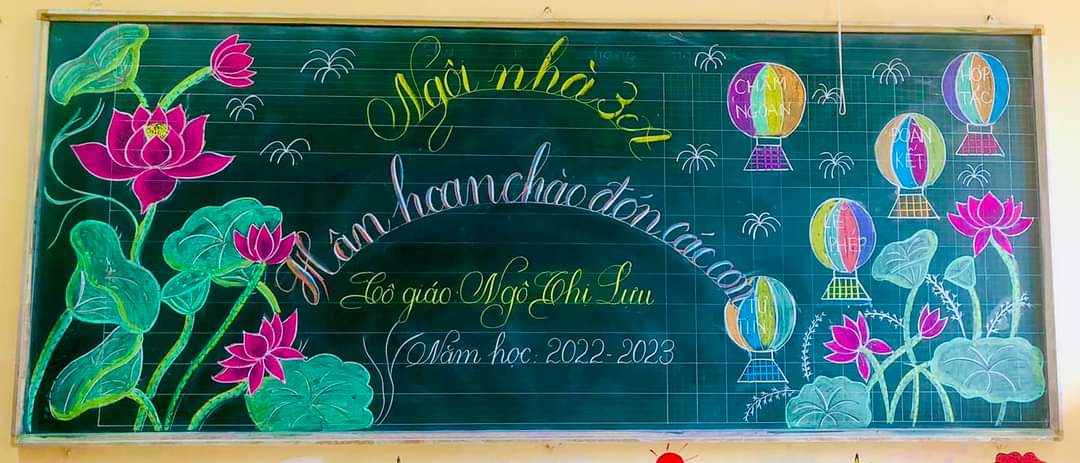 Ngôi nhà 3C1
Hân hoan chào đón các con
Cô giáo: Ngô Thi Lưu
Năm học: 2022-2023
CHĂM
NGOAN
HỢP
TÁC
ĐOÀN
KẾT
LỄ
PHÉP
TỰ
TIN